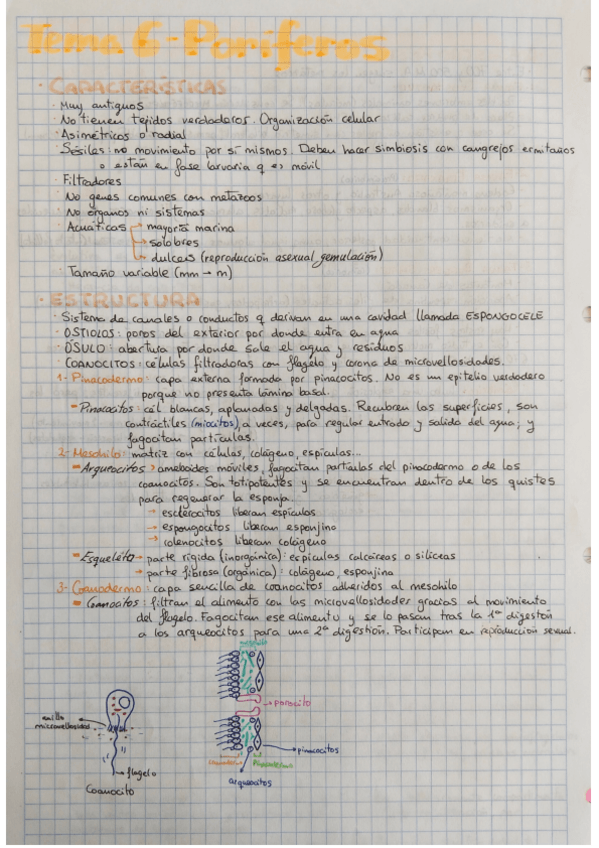 Tema 6 - Poríferos
· CARACTERÍSTICAS
· Muy antiguos
· No tienen tejidos verdaderos. Organización celular
· Asimétricos o radial
· Sésiles: no movimiento por sí mismos. Deben hacer simbiosis con cangrejos ermitaños
o están en fase larvaria q es móvil
· Filtradores
· No genes comunes con metazoos
· No órganos ni sistemas
· Acuáticos → mayoría marina
→ salobres
→ dulces (reproducción asexual, gemulación)
· Tamaño variable (mm → m)
· ESTRUCTURA
· Sistema de canales o conductos q derivan en una cavidad llamada ESPONGOCELE
· OSTIOLOS: poros del exterior por donde entra en agua
· ÓSULO: abertura por donde sale el agua y residuos
· COANOCITOS: células filtradoras con flagelo y corona de microvellosidades.
1- Pinacodermo: capa externa formada por pinacocitos. No es un epitelio verdadero
porque no presenta lámina basal.
- Pinacocitos: cél blancas, aplanadas y delgadas. Recubren las superficies, son
contráctiles (miocitos), a veces, para regular entrada y salida del agua, y
fagocitan partículas.
2- Mesohilo: matriz con células, colágeno, espículas...
- Arqueocitos > ameboides móviles, fagocitan partículas del pinacodermo o de los
coanocitos. Son totipotentes y se encuentran dentro de los quistes
para regenerar la esponja.
→ esclerocitos liberan espículas
→ espongocitos liberan esponjina
→ colenocitos liberan colágeno
- Esqueleto → parte rígida (inorgánica): espículas calcáreas o silíceas
→ parte fibrosa (orgánica): colágeno, esponjina
3- Coanodermo: capa sencilla de coanocitos adheridos al mesohilo
- Coanocitos: filtran el alimento con las microvellosidades gracias al movimiento
del flagelo. Fagocitan ese alimento y se lo pasan tras la 1ª digestión
a los arqueocitos para una 2ª digestión. Participan en reproducción sexual.
mesohilo
→ porocito
anillo
microvellosidad
→ pinacocitos
→ flagelo
Coanodermo
Pinacodermo
Coanocito
arqueocitos